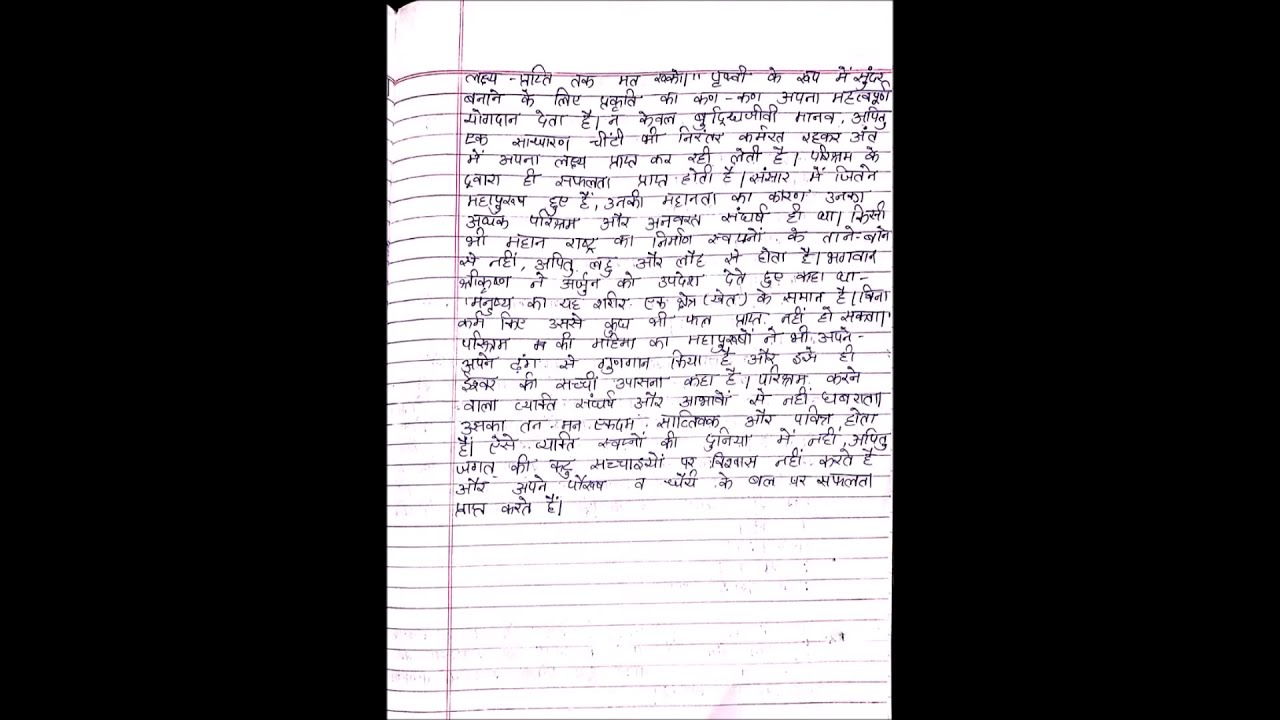 लक्ष्य -प्राप्ति तक मत रुको।" पृथ्वी के रूप में सुंदर
बनाने के लिए प्रकृति का कण-कण अपना महत्वपूर्ण
योगदान देता है। न केवल बुद्धिजीवी मानव, अपितु
एक साधारण चींटी भी निरंतर कर्मरत रहकर अंत
में अपना लक्ष्य प्राप्त कर रही लेती है। परिश्रम के
द्वारा ही सफलता प्राप्त होती है। संसार में जितने
महापुरूष हुए हैं, उनकी महानता का कारण उनका
अथक परिश्रम और अनवरत संघर्ष ही था। किसी
भी महान राष्ट्र का निर्माण स्वप्नों के ताने-बाने
से नहीं, अपितु लहु और लौह से होता है। भगवान
श्रीकृष्ण ने अर्जुन को उपदेश देते हुए कहा था-
'मनुष्य का यह शरीर एक क्षेत्र (खेत) के समान है। बिना
कर्म किए उससे कुछ भी फल प्राप्त नहीं हो सकता।'
परिश्रम की महिमा का महापुरूषों ने भी अपने-
अपने ढ़ंग से गुणगान किया है और इसे ही
ईश्वर की सच्ची उपासना कहा है। परिश्रम करने
वाला व्यक्ति संघर्ष और आभावों से नहीं घबराता।
उसका तन मन एकदम सात्विक और पवित्र होता
है। ऐसे व्यक्ति स्वप्नों की दुनिया में नहीं, अपितु
जगत् की कटु सच्चाइयों पर विश्वास नहीं करते है
और अपने पौरूष व धैर्य के बल पर सफलता
प्राप्त करते हैं।